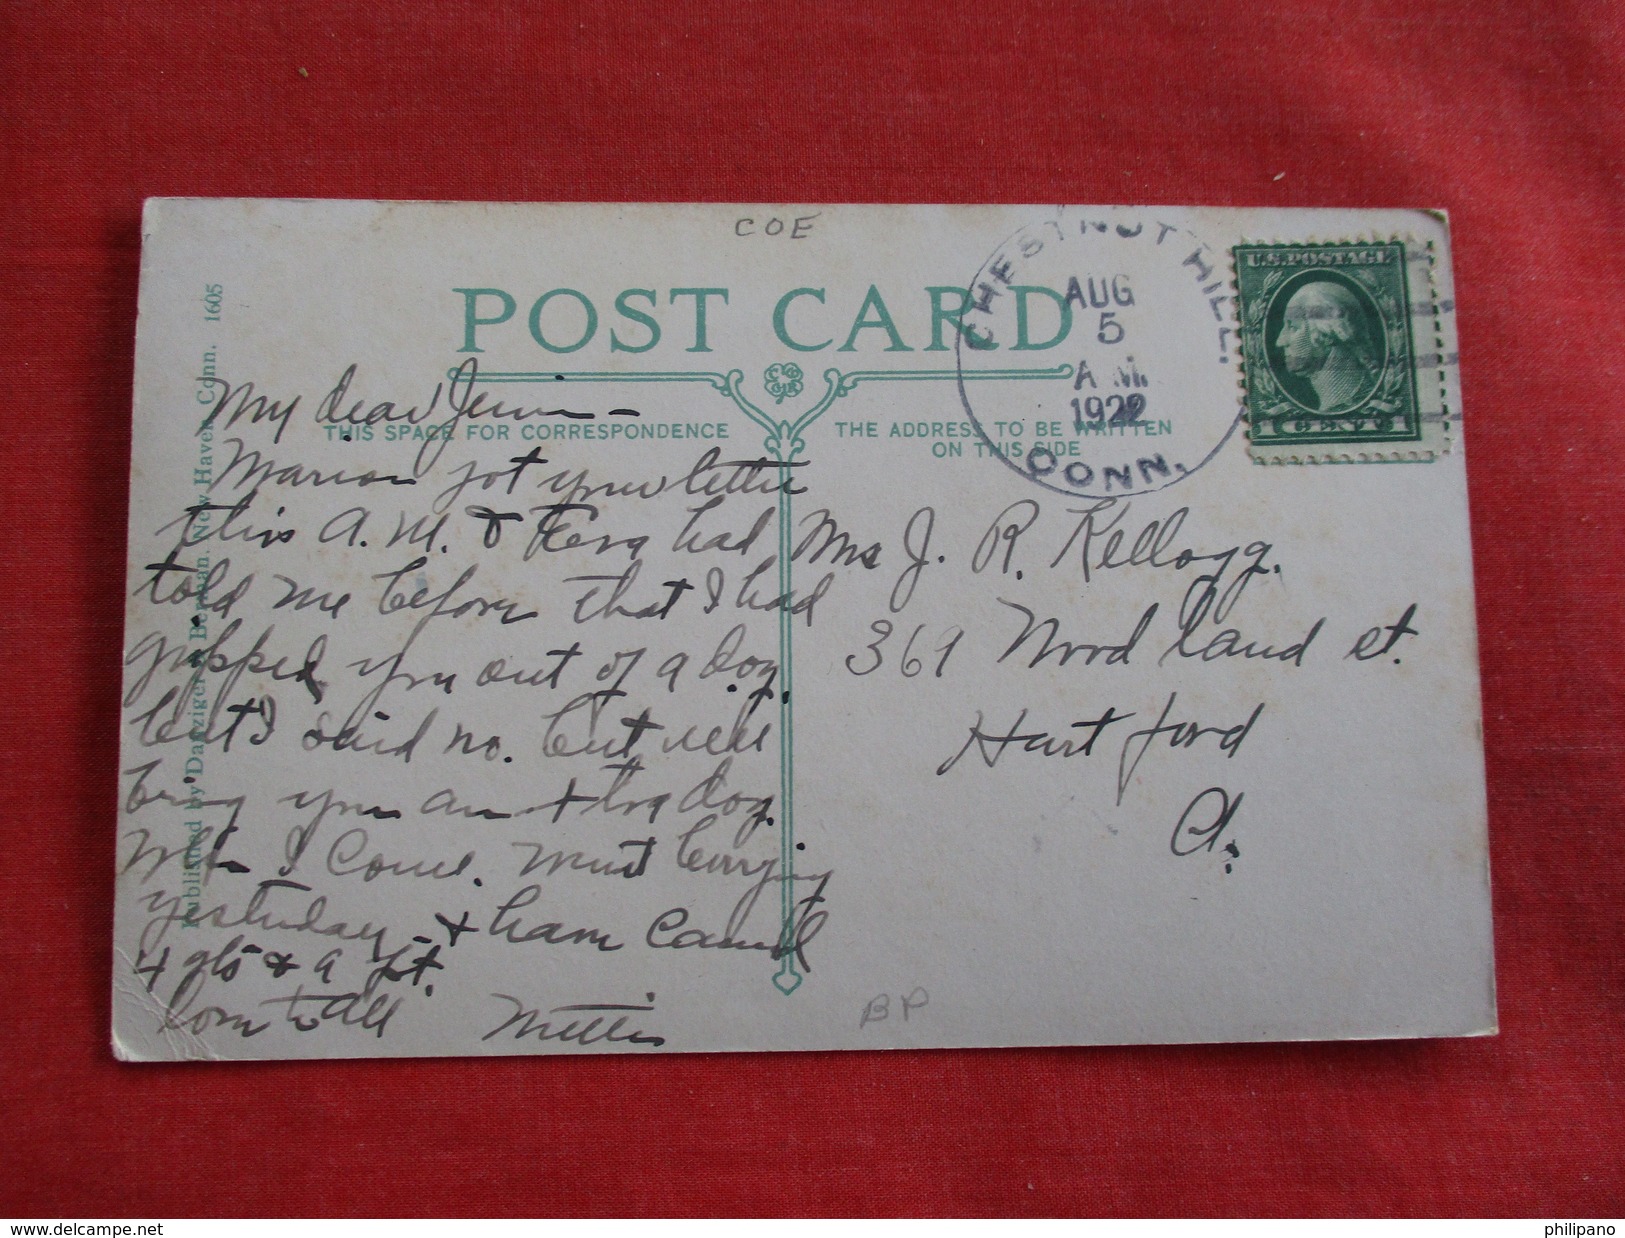 COE
POST CARD
CHESTNUT HILL.
AUG
5
A.M.
1922
CONN.
U.S. POSTAGE
1 CENT 1
THIS SPACE FOR CORRESPONDENCE
THE ADDRESS TO BE WRITTEN
ON THIS SIDE
Published by Danziger & Berman. New Haven, Conn. 1605
My dear Jennie -
Marion got your letter
this A.M. & had
told me before that I had
gypped you out of a dog.
but I said no. but will
bring you an dog.
When I come. Went berrying
yesterday - & have canned
4 qts & a pt.
Love to all
Millie
J. R. Kellogg.
369 Woodland st.
Hartford
Ct.
BP
delcampe.net
philipano